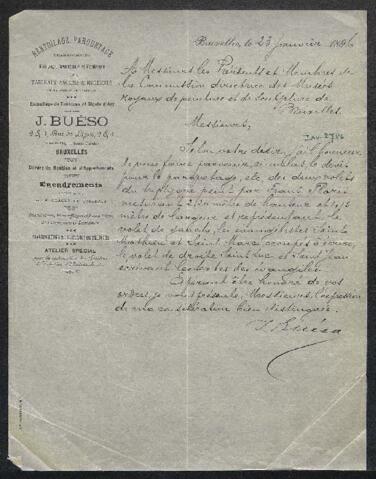 RENTOILAGE, PARQUETAGE
TABLEAUX ANCIENS & MODERNES
Emballage de Tableaux et Objets d'Art
J. BUÉSO
BRUXELLES
Encadrements
ATELIER SPÉCIAL
Bruxelles, le 23 janvier 1896
A Messieurs les Présidents et Membres de
la Commission directrice des Musées
royaux de peinture et de Sculpture de
Bruxelles.
Messieurs,
INV. 2786
Selon votre désir, j'ai l'honneur
de vous faire parvenir, ci-inclus, le devis
pour le parquetage, etc. des deux volets
du triptyque peint par Frans Floris
mesurant 2.20 mètre de hauteur et
mètre de largeur et représentant le
volet de gauche, les évangélistes Saint
Mathieu et Saint Marc occupés à écrire,
le volet de droite Saint Luc et Saint Jean
écrivant les textes des évangiles.
Espérant être honoré de vos
ordres, je vous présente, Messieurs, l'expression
de ma considération bien distinguée.
J. Buéso